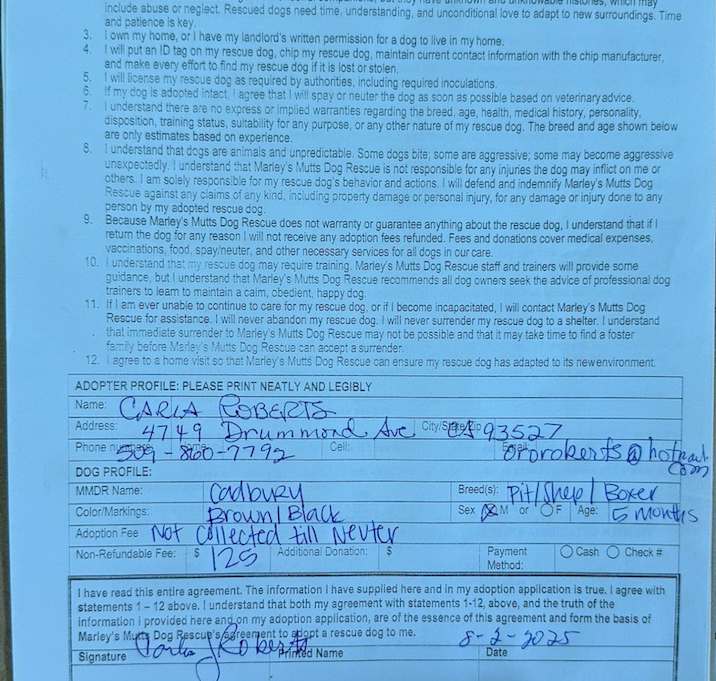 include abuse or neglect. Rescued dogs need time, understanding, and unconditional love to adapt to new surroundings. Time
and patience is key.
3. I own my home, or I have my landlord's written permission for a dog to live in my home.
4. I will put an ID tag on my rescue dog, chip my rescue dog, maintain current contact information with the chip manufacturer,
and make every effort to find my rescue dog if it is lost or stolen.
5. I will license my rescue dog as required by authorities, including required inoculations.
6. If my dog is adopted intact, I agree that I will spay or neuter the dog as soon as possible based on veterinary advice.
7. I understand there are no express or implied warranties regarding the breed, age, health, medical history, personality,
disposition, training status, suitability for any purpose, or any other nature of my rescue dog. The breed and age shown below
are only estimates based on experience.
8. I understand that dogs are animals and unpredictable. Some dogs bite; some are aggressive; some may become aggressive
unexpectedly. I understand that Marley's Mutts Dog Rescue is not responsible for any injuries the dog may inflict on me or
others. I am solely responsible for my rescue dog's behavior and actions. I will defend and indemnify Marley's Mutts Dog
Rescue against any claims of any kind, including property damage or personal injury, for any damage or injury done to any
person by my adopted rescue dog.
9. Because Marley's Mutts Dog Rescue does not warranty or guarantee anything about the rescue dog, I understand that if I
return the dog for any reason I will not receive any adoption fees refunded. Fees and donations cover medical expenses,
vaccinations, food, spay/neuter, and other necessary services for all dogs in our care.
10. I understand that my rescue dog may require training. Marley's Mutts Dog Rescue staff and trainers will provide some
guidance, but I understand that Marley's Mutts Dog Rescue recommends all dog owners seek the advice of professional dog
trainers to learn to maintain a calm, obedient, happy dog.
11. If I am ever unable to continue to care for my rescue dog, or if I become incapacitated, I will contact Marley's Mutts Dog
Rescue for assistance. I will never abandon my rescue dog. I will never surrender my rescue dog to a shelter. I understand
that immediate surrender to Marley's Mutts Dog Rescue may not be possible and that it may take time to find a foster
family before Marley's Mutts Dog Rescue can accept a surrender.
12. I agree to a home visit so that Marley's Mutts Dog Rescue can ensure my rescue dog has adapted to its new environment.
ADOPTER PROFILE: PLEASE PRINT NEATLY AND LEGIBLY
Name: CARLA ROBERTS
Address: 4749 Drummond Ave City/State/Zip CA 93527
Phone number: Home: 509-860-7792 Cell: Email: @hotmail.com
DOG PROFILE:
MMDR Name: Cadbury Breed(s): Pit/Shep/Boxer
Color/Markings: Brown/Black Sex M or F Age: 5 months
Adoption Fee Not Collected till Neuter
Non-Refundable Fee: $ 125 Additional Donation: $ Payment Method: Cash Check #
I have read this entire agreement. The information I have supplied here and in my adoption application is true. I agree with
statements 1 – 12 above. I understand that both my agreement with statements 1-12, above, and the truth of the
information I provided here and on my adoption application, are of the essence of this agreement and form the basis of
Marley's Mutts Dog Rescue's agreement to adopt a rescue dog to me.
Carla J Roberts 8-2-2025
Signature Printed Name Date